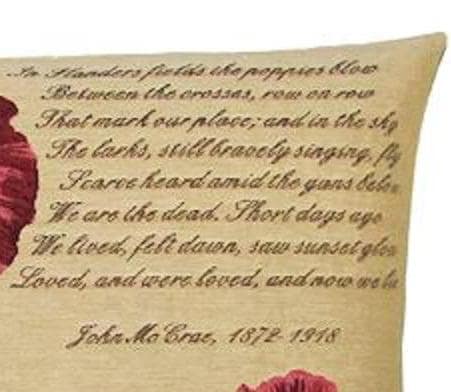 In Flanders fields the poppies blow
Between the crosses, row on row
That mark our place; and in the sky
The larks, still bravely singing, fly
Scarce heard amid the guns belo
We are the dead. Short days ago
We lived, felt dawn, saw sunset glo
Loved, and were loved, and now we li
John McCrae, 1872-1918